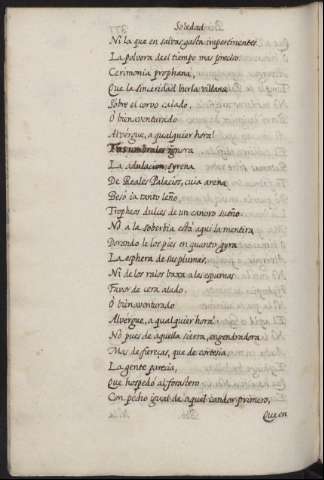 Soledad
Ni la que en salvas gasta impertinentes
La polvora del tiempo mas preciso:
Cerimonia prophana,
Que la sinceridad burla villana
Sobre el corvo caiado,
O bienaventurado
Alvergue, a qualquier hora!
Tus umbrales ignora
La adulacion, syrena
De Reales Palacios, cuia arena
Besò ia tanto leño,
Tropheos dulces de un canoro sueño
No à la soberbia està aqui la mentira
Dorando le los pies en quanto gyra
La esphera de sus plumas,
Ni de los raios baxa a las espumas
Favor de cera alado,
O bienaventurado
Alvergue, a qualquier hora!
No pues de aquella sierra, engendradora
Mas de fierezas, que de cortesia
La gente parecia,
Que hospedò al forastero
Con pecho igual de aquel candor primero,
Que en